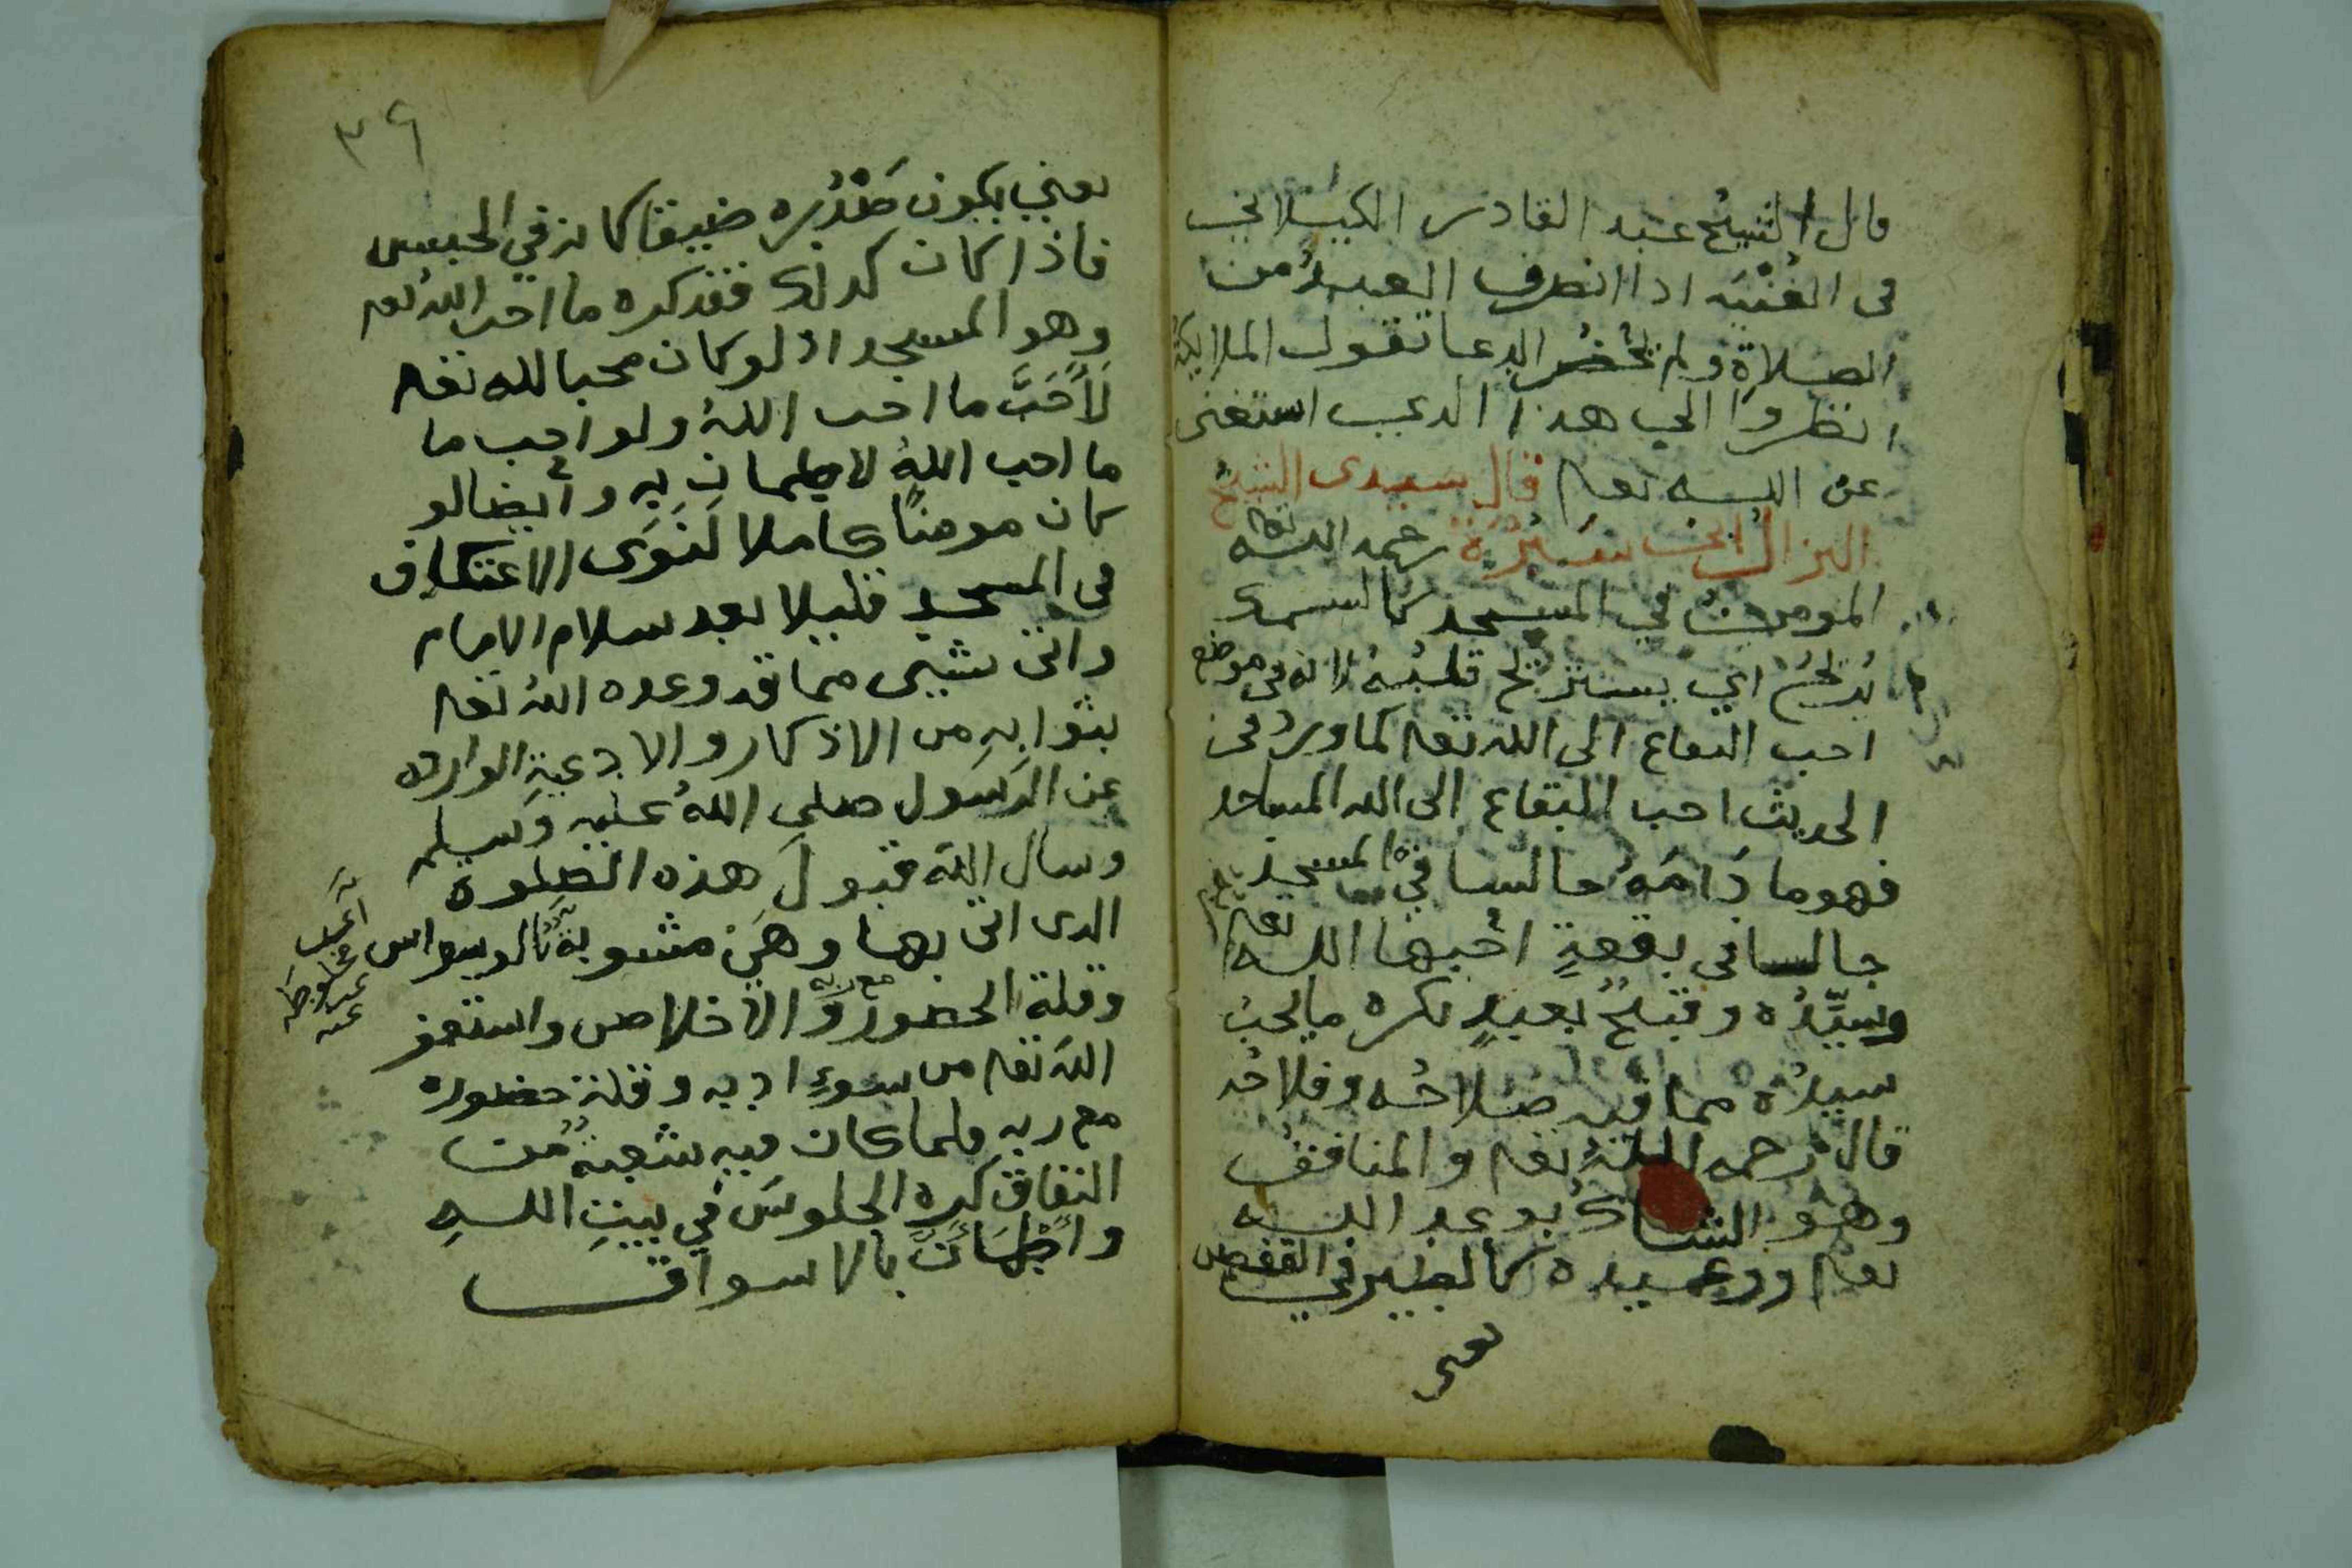 قال الشيخ عبد القادر الكيلاني
فى الغنيه اذا انصرف العبد من
الصلاة ولم يحضر الدعا تقول الملايكة
انظروا الى هذا الدى استغنى
عن الله تعه قال سيدى الشيخ
رحمه الله تعه
المومن في المسجد كالسمك
اي يستريح قلبه لانه فى موضع
احب البقاع الى الله تعه كما ورد فى
الحديث احب البقاع الى الله المساجد
فهو ما دامه جالسا في المسجد
جالسا فى بقعة احبها الله تعه
وسيده وقبيح بعبد يكره ما يحب
سيده مما فيه صلاحه وفلاحه
قال رحمه الله تعه والمنافق
وهو الشاك بوعد الله
تعه ووعيده كالطير في القفص
يعنى
٣٩
يعني يكون صدره ضيقا كانه في الحبس
فاذا كان كدلك فقد كره ما احب الله تعه
وهو المسجد اذ لو كان محبا لله تعه
لاحب ما احب الله ولو احب ما
ما احب الله لاطمان به وايضا لو
كان مومنا كاملا لنوى الاعتكاف
فى المسجد قليلا بعد سلام الامام
واتى بشيى مما قد وعده الله تعه
بثوابه من الاذكار والادعية الوارده
عن الرسول صلى الله عليه وسلم
وسال الله قبول هذه الصلوة
الدى اتى بها وهي مشوبة بالوسواس
وقلة الحضور مع ربه والاخلاص واستغفر
الله تعه من سوء ادبه وقلة حضوره
مع ربه فلما كان فيه شعبة من
النفاق كره الجلوس في بيت الله
واطمان بالاسواق